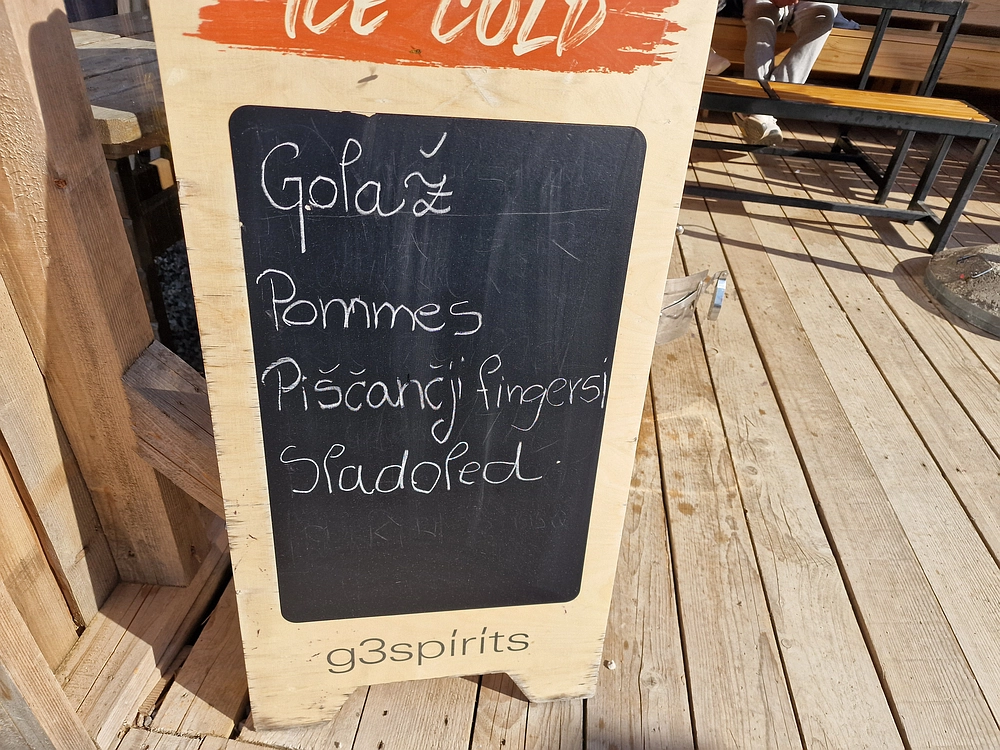 ICE COLD
Golaž
Pommes
Piščančji fingersi
Sladoled.
g3spirits